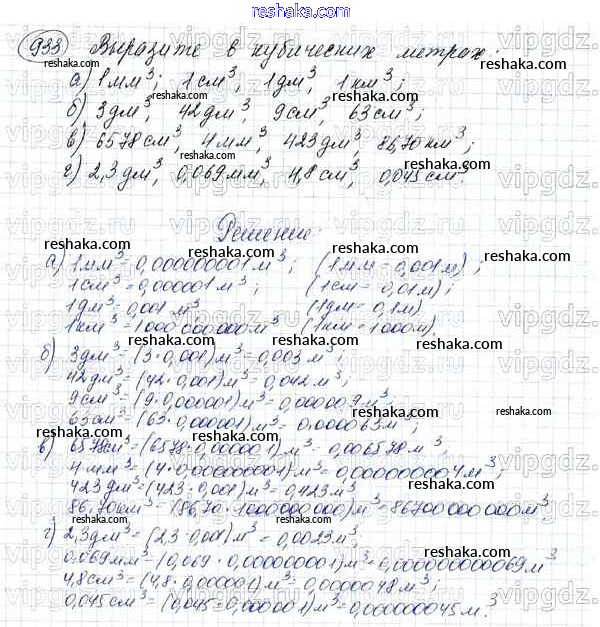 933 Выразите в кубических метрах:
а) 1 мм³; 1 см³; 1 дм³; 1 км³;
б) 3 дм³; 42 дм³; 9 см³; 63 см³;
в) 6578 см³; 4 мм³; 423 дм³; 86,70 км³;
г) 2,3 дм³; 0,069 мм³; 4,8 см³; 0,045 см³.
Решение:
а) 1 мм³ = 0,000000001 м³; (1 мм = 0,001 м);
1 см³ = 0,000001 м³; (1 см = 0,01 м);
1 дм³ = 0,001 м³ (1 дм = 0,1 м)
1 км³ = 1000 000 000 м³ (1 км = 1000 м).
б) 3 дм³ = (3 · 0,001) м³ = 0,003 м³;
42 дм³ = (42 · 0,001) м³ = 0,042 м³;
9 см³ = (9 · 0,000001) м³ = 0,000009 м³;
63 см³ = (63 · 0,000001) м³ = 0,000063 м³;
в) 6578 см³ = (6578 · 0,000001) м³ = 0,006578 м³;
4 мм³ = (4 · 0,000000001) м³ = 0,000000004 м³;
423 дм³ = (423 · 0,001) м³ = 0,423 м³;
86,70 км³ = (86,70 · 1000000000) м³ = 86700 000 000 м³
г) 2,3 дм³ = (2,3 · 0,001) м³ = 0,0023 м³;
0,069 мм³ = (0,069 · 0,000000001) м³ = 0,000000000069 м³
4,8 см³ = (4,8 · 0,000001) м³ = 0,0000048 м³;
0,045 см³ = (0,045 · 0,000001) м³ = 0,000000045 м³.
reshaka.com
vipgdz.ru